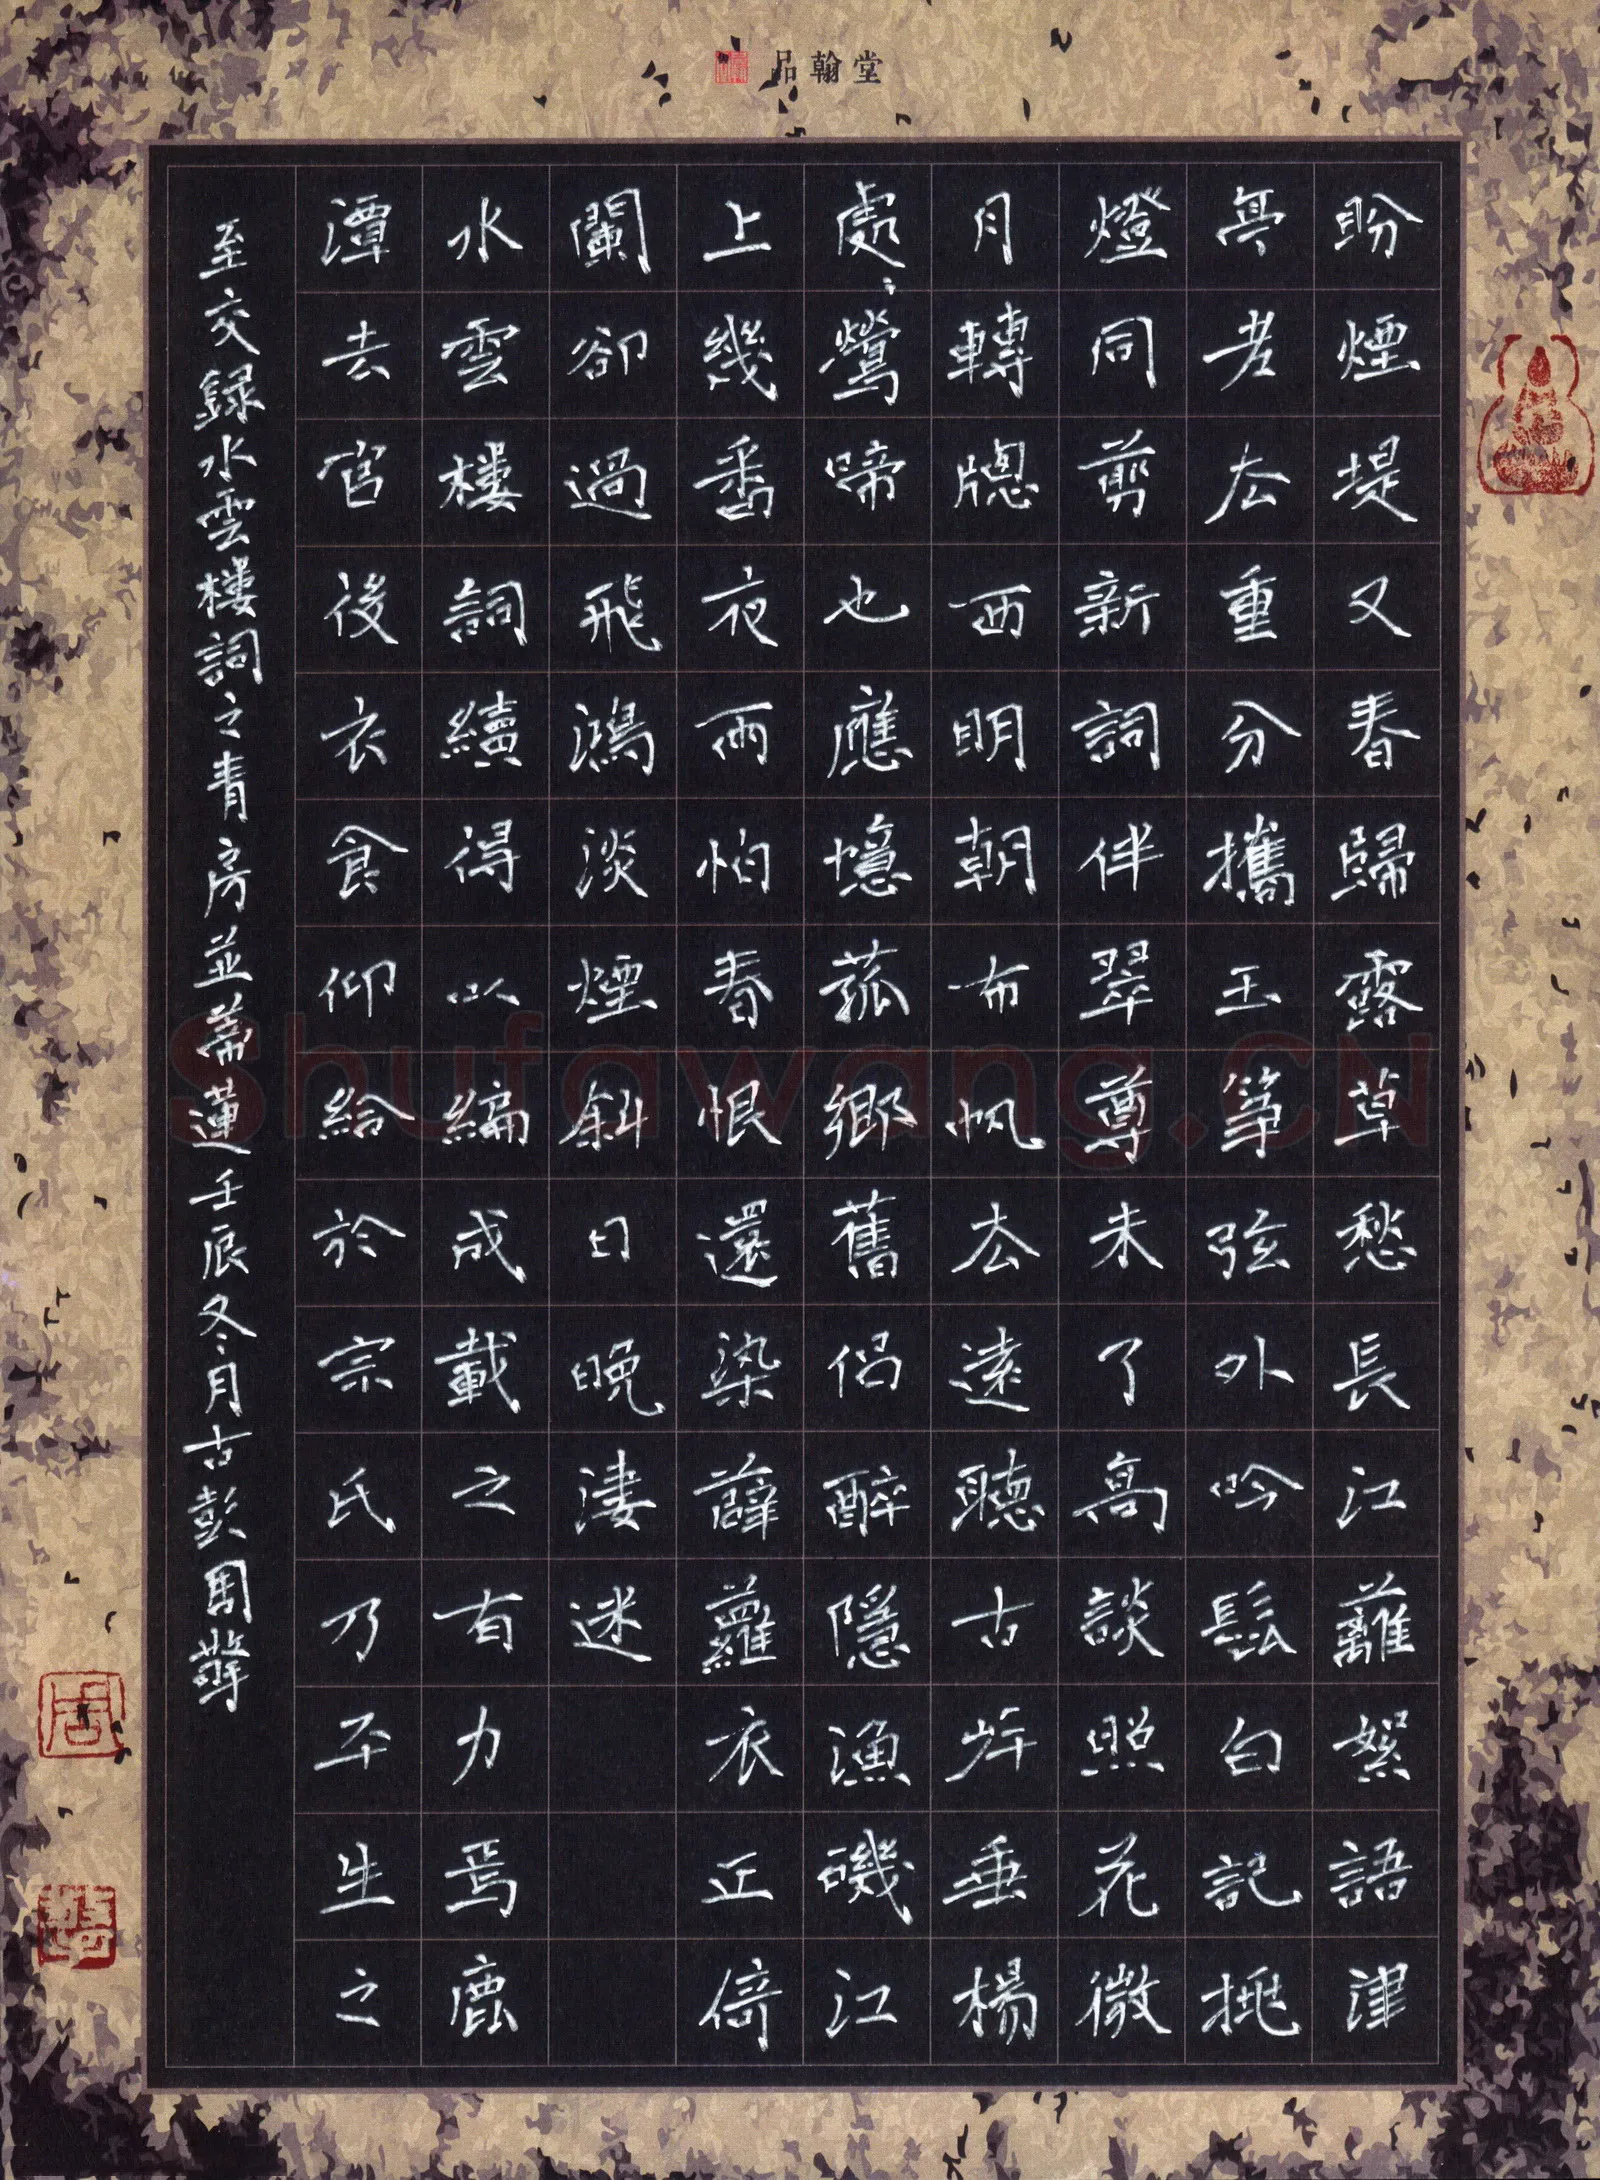 品翰堂
盼煙堤又春歸露草愁長江蘺絮語津
亭老去重分攜玉箏弦外吟髭白記挑
燈同剪新詞伴翠尊未了高談照花微
月轉牕西明朝布帆去遠聽古岸垂楊
處處鶯啼也應憶菰鄉舊侶醉隱漁磯江
上幾番夜雨怕春恨還染薜蘿衣正倚
闌卻過飛鴻淡煙斜日晚淒迷
水雲樓詞續得以編成載之有力焉鹿
潭去官後衣食仰給於宗氏乃平生之
至交録水雲樓詞之青房並蒂蓮壬辰冬月古彭周擎
Shufawang.CN
周